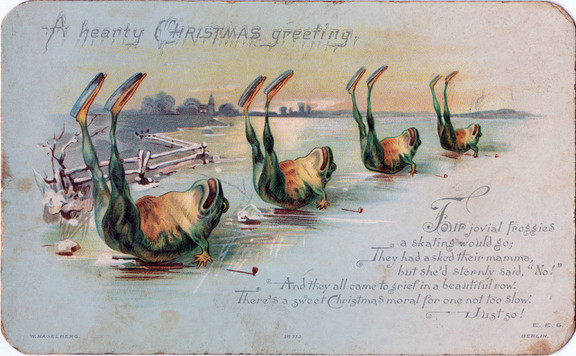 A hearty CHRISTMAS greeting.
Four jovial froggies
a skating would go;
They had asked their mamma,
but she'd sternly said, "No!"
And they all came to grief in a beautiful row.
There's a sweet Christmas moral for one not too slow.
Just go!
E. E. G.
W. HAGELBERG.
BERLIN.